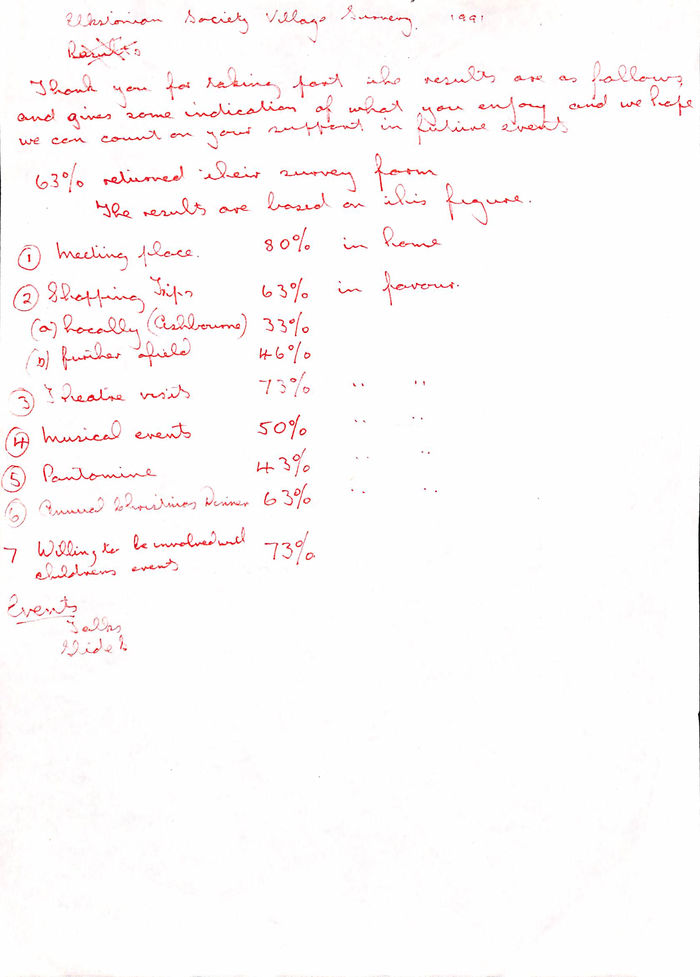 Elkstonian Society Village Survey. 1991
Results
Thank you for taking part the results are as follows,
and gives some indication of what you enjoy and we hope
we can count on your support in future events
63% returned their survey form
The results are based on this figure.
① Meeting place. 80% in home
② Shopping Trips 63% in favour.
(a) Locally (Ashbourne) 33%
(b) further afield 46%
③ Theatre visits 73% " "
④ Musical events 50% " "
⑤ Pantomine 43% " "
⑥ Annual Christmas Dinner 63% " "
7 Willing to be involved with 73%
childrens events
Events
Talks